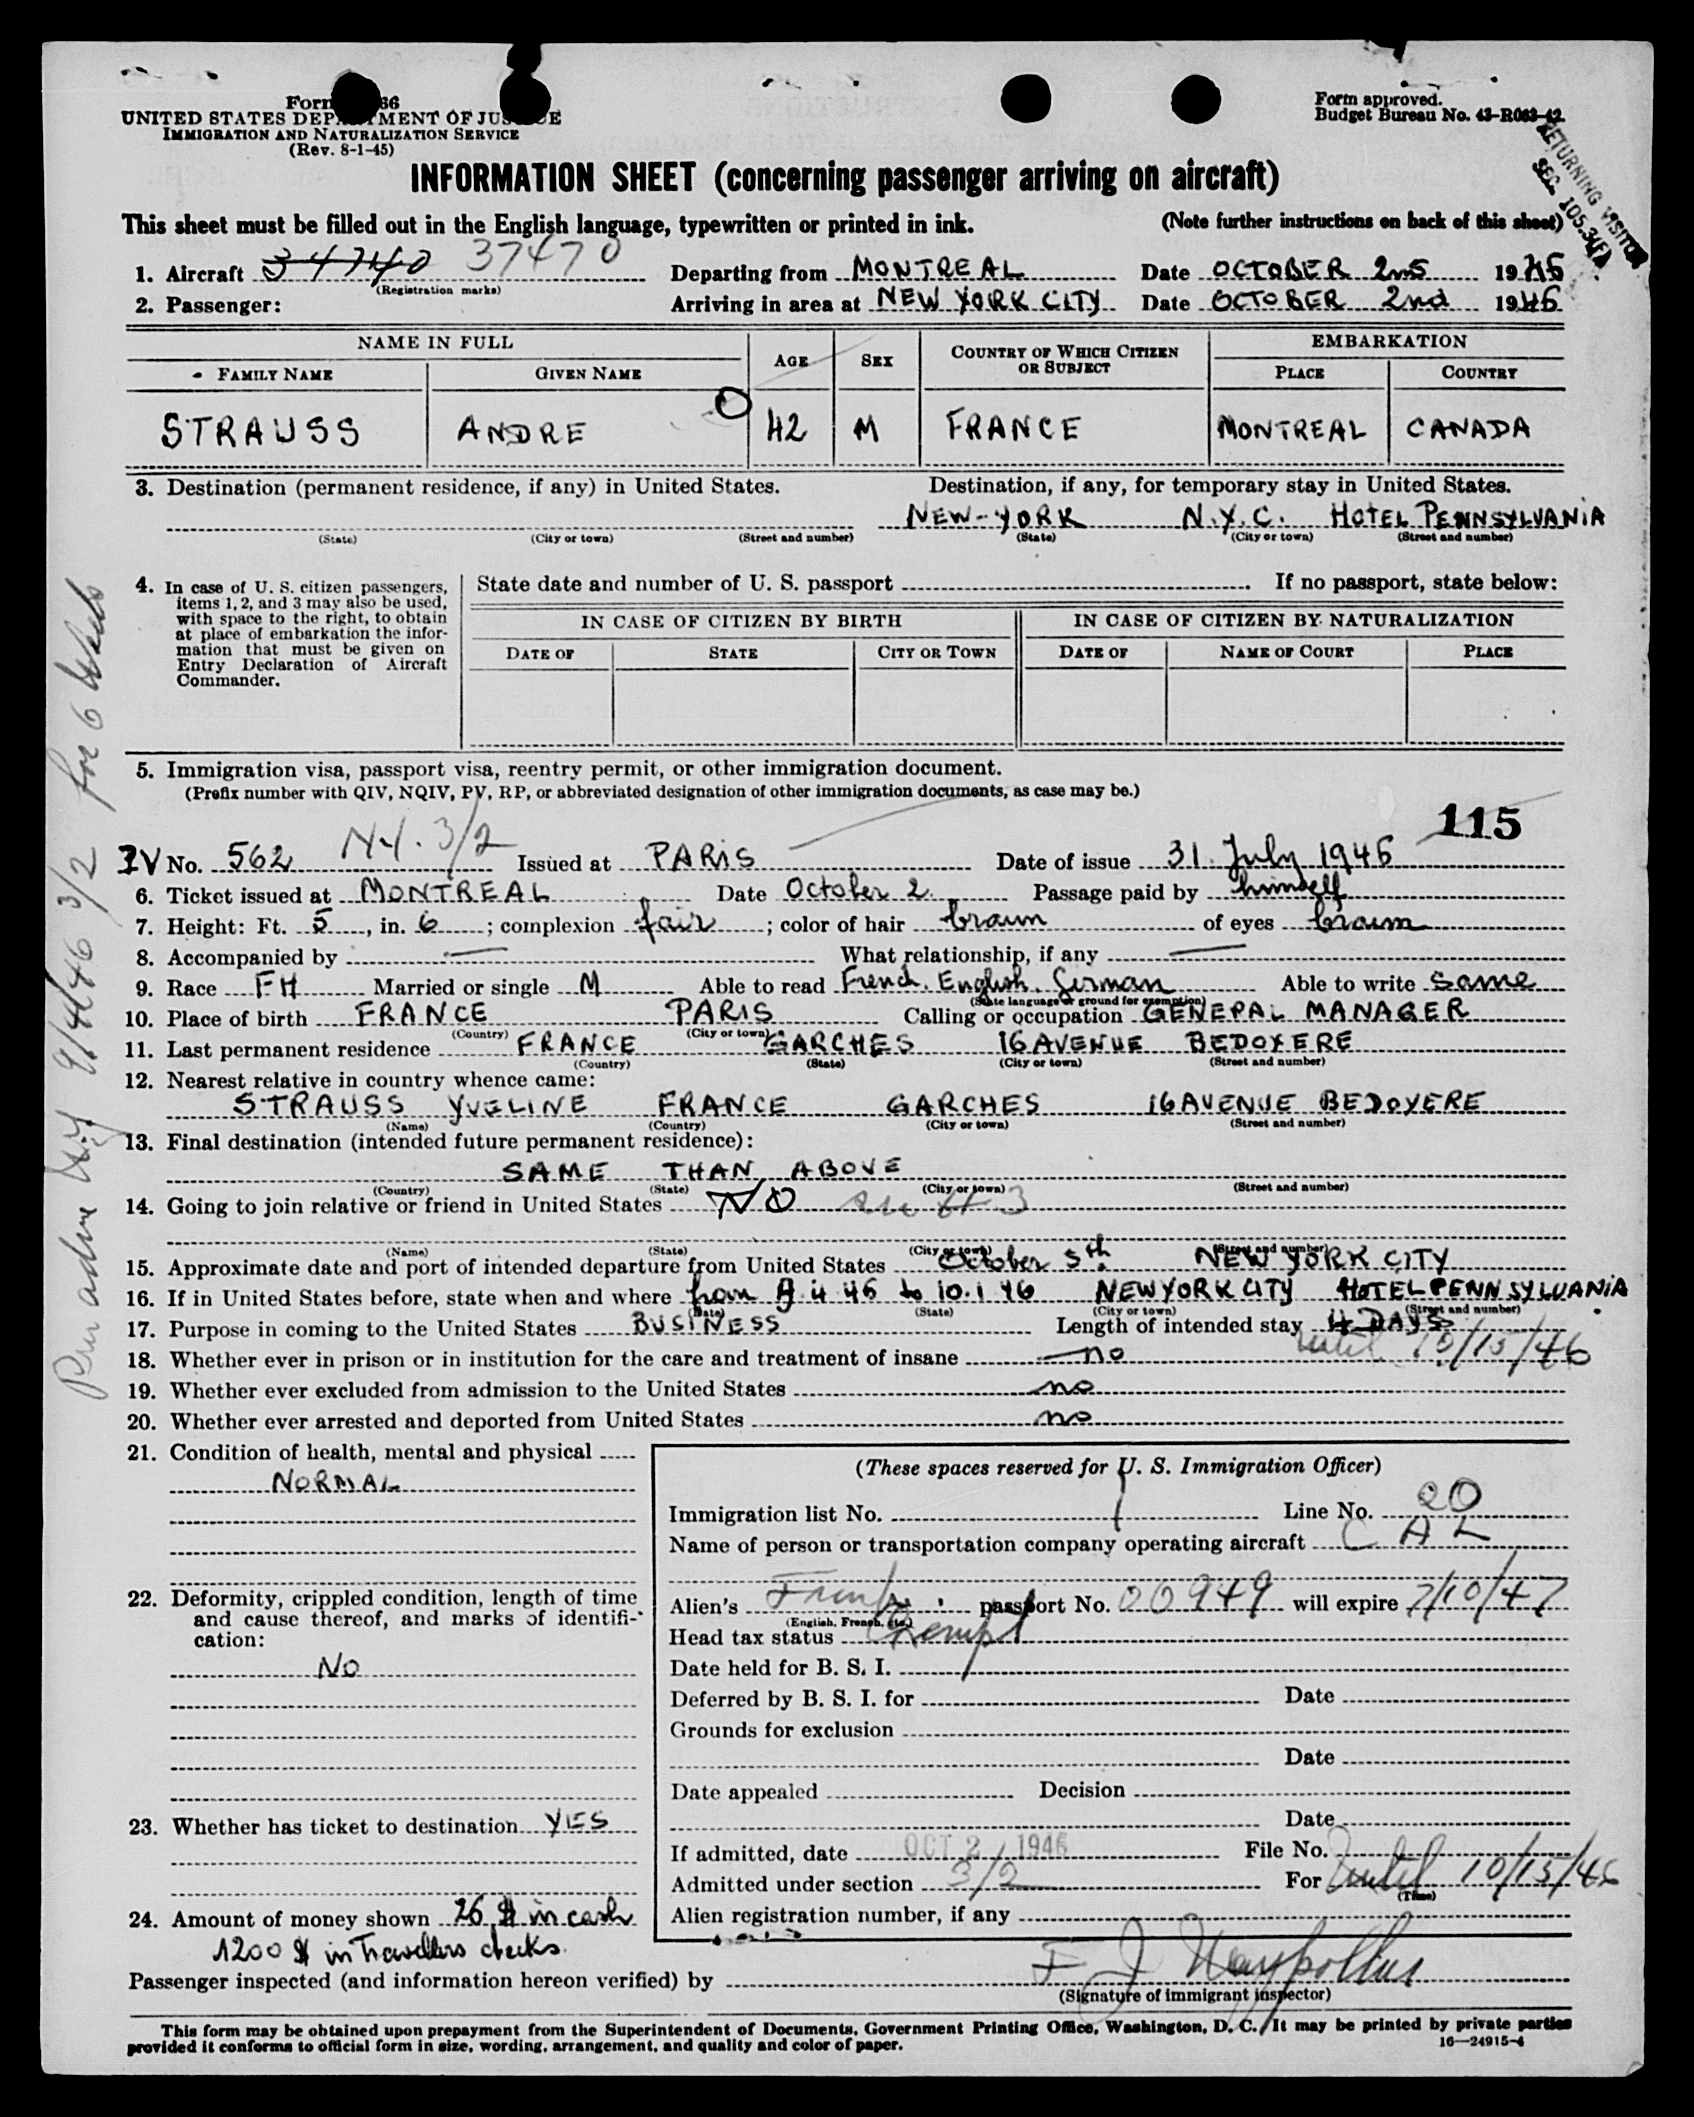 Form approved.
Budget Bureau No. 43-R083-42.
UNITED STATES DEPARTMENT OF JUSTICE
IMMIGRATION AND NATURALIZATION SERVICE
(Rev. 8-1-45)
RETURNING VISITOR
SEC. 105.3(F)
INFORMATION SHEET (concerning passenger arriving on aircraft)
This sheet must be filled out in the English language, typewritten or printed in ink. (Note further instructions on back of this sheet)
1. Aircraft 34740 37470 Departing from MONTREAL Date OCTOBER 2nd 1946
(Registration marks)
2. Passenger: Arriving in area at NEW YORK CITY Date OCTOBER 2nd 1946
NAME IN FULL AGE SEX COUNTRY OF WHICH CITIZEN OR SUBJECT EMBARKATION
FAMILY NAME GIVEN NAME PLACE COUNTRY
STRAUSS ANDRE 42 M FRANCE MONTREAL CANADA
3. Destination (permanent residence, if any) in United States. Destination, if any, for temporary stay in United States.
NEW-YORK N.Y.C. HOTEL PENNSYLVANIA
(State) (City or town) (Street and number) (State) (City or town) (Street and number)
4. In case of U. S. citizen passengers,
items 1, 2, and 3 may also be used,
with space to the right, to obtain
at place of embarkation the infor-
mation that must be given on
Entry Declaration of Aircraft
Commander.
State date and number of U. S. passport If no passport, state below:
IN CASE OF CITIZEN BY BIRTH IN CASE OF CITIZEN BY NATURALIZATION
DATE OF STATE CITY OR TOWN DATE OF NAME OF COURT PLACE
5. Immigration visa, passport visa, reentry permit, or other immigration document.
(Prefix number with QIV, NQIV, PV, RP, or abbreviated designation of other immigration documents, as case may be.)
115
IV No. 562 N.Y. 3/2 Issued at PARIS Date of issue 31 July 1946
6. Ticket issued at MONTREAL Date October 2. Passage paid by himself
7. Height: Ft. 5, in. 6; complexion fair; color of hair braun of eyes braun
8. Accompanied by — What relationship, if any —
9. Race FH Married or single M Able to read French. English. German Able to write same
(State language or ground for exemption)
10. Place of birth FRANCE PARIS Calling or occupation GENERAL MANAGER
(Country) (City or town)
11. Last permanent residence FRANCE GARCHES 16 AVENUE BEDOYERE
(Country) (State) (City or town) (Street and number)
12. Nearest relative in country whence came:
STRAUSS YVELINE FRANCE GARCHES 16 AVENUE BEDOYERE
(Name) (Country) (City or town) (Street and number)
13. Final destination (intended future permanent residence):
SAME THAN ABOVE
(Country) (State) (City or town) (Street and number)
14. Going to join relative or friend in United States NO
(Name) (State) (City or town) (Street and number)
15. Approximate date and port of intended departure from United States October 5th. NEW YORK CITY
16. If in United States before, state when and where from 9 4 46 to 10.1 46 NEW YORK CITY HOTEL PENNSYLVANIA
(Date) (State) (City or town) (Street and number)
17. Purpose in coming to the United States BUSINESS Length of intended stay 4 DAYS
until 10/15/46
18. Whether ever in prison or in institution for the care and treatment of insane no
19. Whether ever excluded from admission to the United States no
20. Whether ever arrested and deported from United States no
21. Condition of health, mental and physical
NORMAL
22. Deformity, crippled condition, length of time
and cause thereof, and marks of identifi-
cation:
No
23. Whether has ticket to destination YES
24. Amount of money shown 26 $ in cash
1200 $ in Travellers checks.
(These spaces reserved for U. S. Immigration Officer)
Immigration list No. 1 Line No. 20
Name of person or transportation company operating aircraft C A L
Alien's French passport No. 00949 will expire 7/10/47
(English, French, etc.)
Head tax status Exempt
Date held for B. S. I.
Deferred by B. S. I. for Date
Grounds for exclusion
Date
Date appealed Decision
Date
If admitted, date OCT 2 1946 File No.
Admitted under section 3/2 For until 10/15/46
(Time)
Alien registration number, if any
Passenger inspected (and information hereon verified) by F J
(Signature of immigrant inspector)
This form may be obtained upon prepayment from the Superintendent of Documents, Government Printing Office, Washington, D. C. It may be printed by private parties
provided it conforms to official form in size, wording, arrangement, and quality and color of paper. 16—24915-4
Prev adm N.Y 9/4/46 3/2 for 6 Weeks